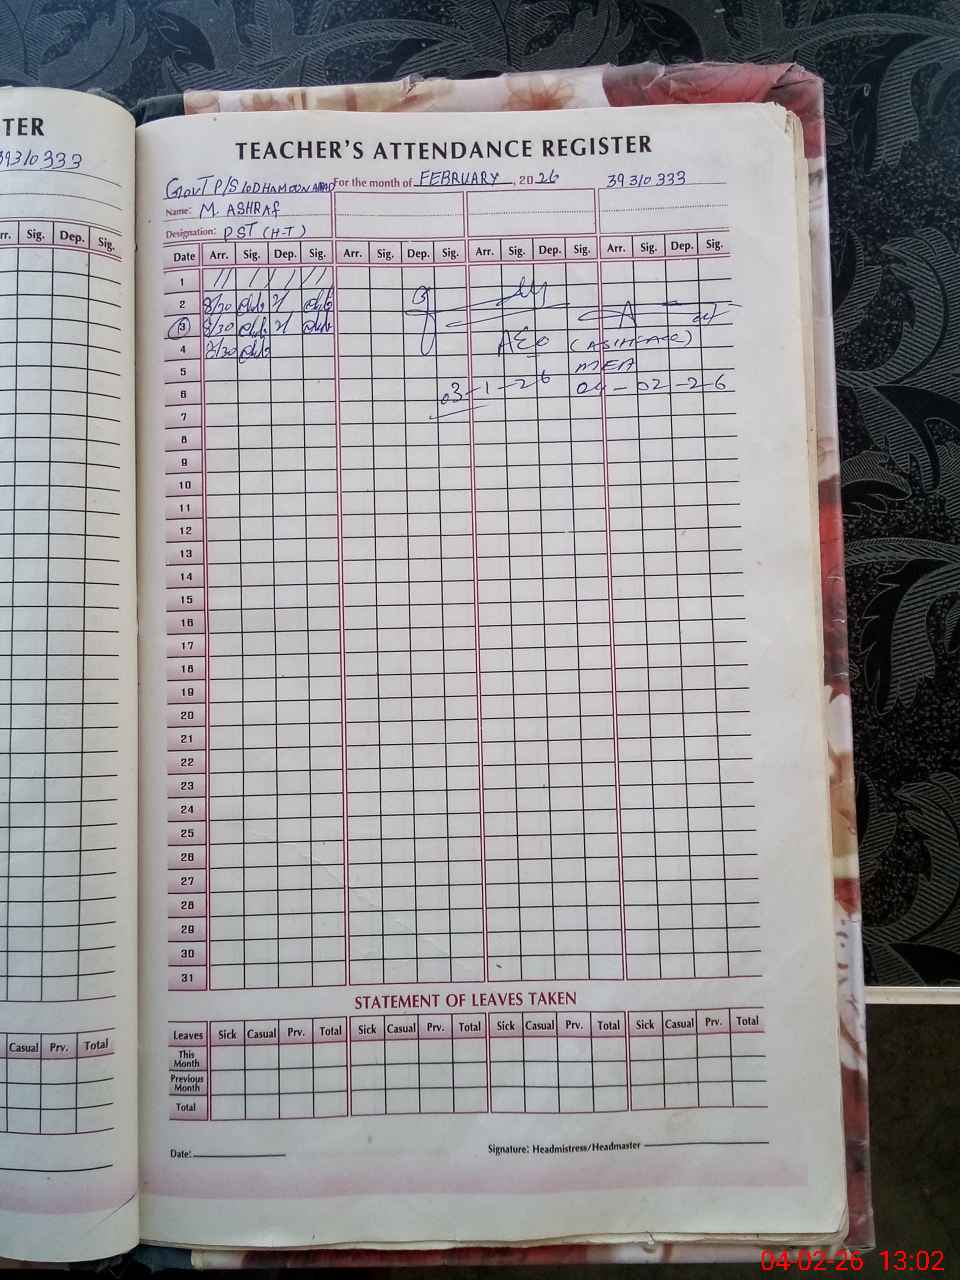 TER
39310333
TEACHER'S ATTENDANCE REGISTER
GovT P/S LODHAMOONABAD For the month of FEBRUARY, 2026 39310333
Name: M. ASHRAF
Designation: PST (H-T)
Arr. Sig. Dep. Sig.
Date Arr. Sig. Dep. Sig. Arr. Sig. Dep. Sig. Arr. Sig. Dep. Sig. Arr. Sig. Dep. Sig.
1 // / / //
2 8/30
3 8/30
4 8/30 AEO
5 MEA
6 03-1-26 04-02-26
7
8
9
10
11
12
13
14
15
16
17
18
19
20
21
22
23
24
25
26
27
28
29
30
31
STATEMENT OF LEAVES TAKEN
Casual Prv. Total
Leaves Sick Casual Prv. Total Sick Casual Prv. Total Sick Casual Prv. Total Sick Casual Prv. Total
This Month
Previous Month
Total
Date: Signature: Headmistress/Headmaster
04-02-26 13:02